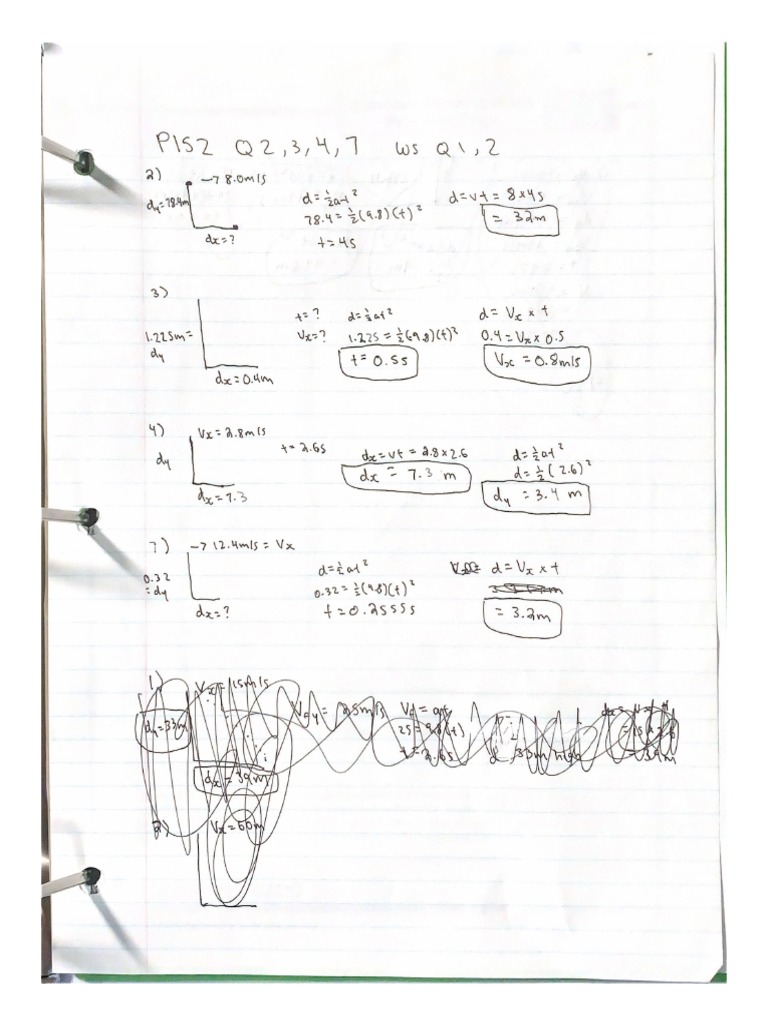 P152 Q2,3,4,7 WS Q1,2
2) → 8.0m/s
dy=78.4m
dx=?
d=½at²
78.4=½(9.8)(t)²
t=4s
d=vt=8×4s
= 32m
3)
1.225m=
dy
dx=0.4m
t=?
Vx=?
d=½at²
1.225=½(9.8)(t)²
t=0.5s
d= Vx × t
0.4=Vx x 0.5
Vx = 0.8m/s
4) Vx=2.8m/s
dy
dx=7.3
t=2.6s
dx=vt = 2.8×2.6
dx = 7.3 m
d=½at²
d=½(2.6)²
dy = 3.4 m
7) → 12.4m/s = Vx
0.32
=dy
dx=?
d=½at²
0.32=½(9.8)(t)²
t=0.2555s
d=Vx × t
= 3.2m
1) Vx=15m/s
dy=33m
dx=39m
25=9.8(t)
t=2.6s
33m high
= 39m
2) Vx=60m